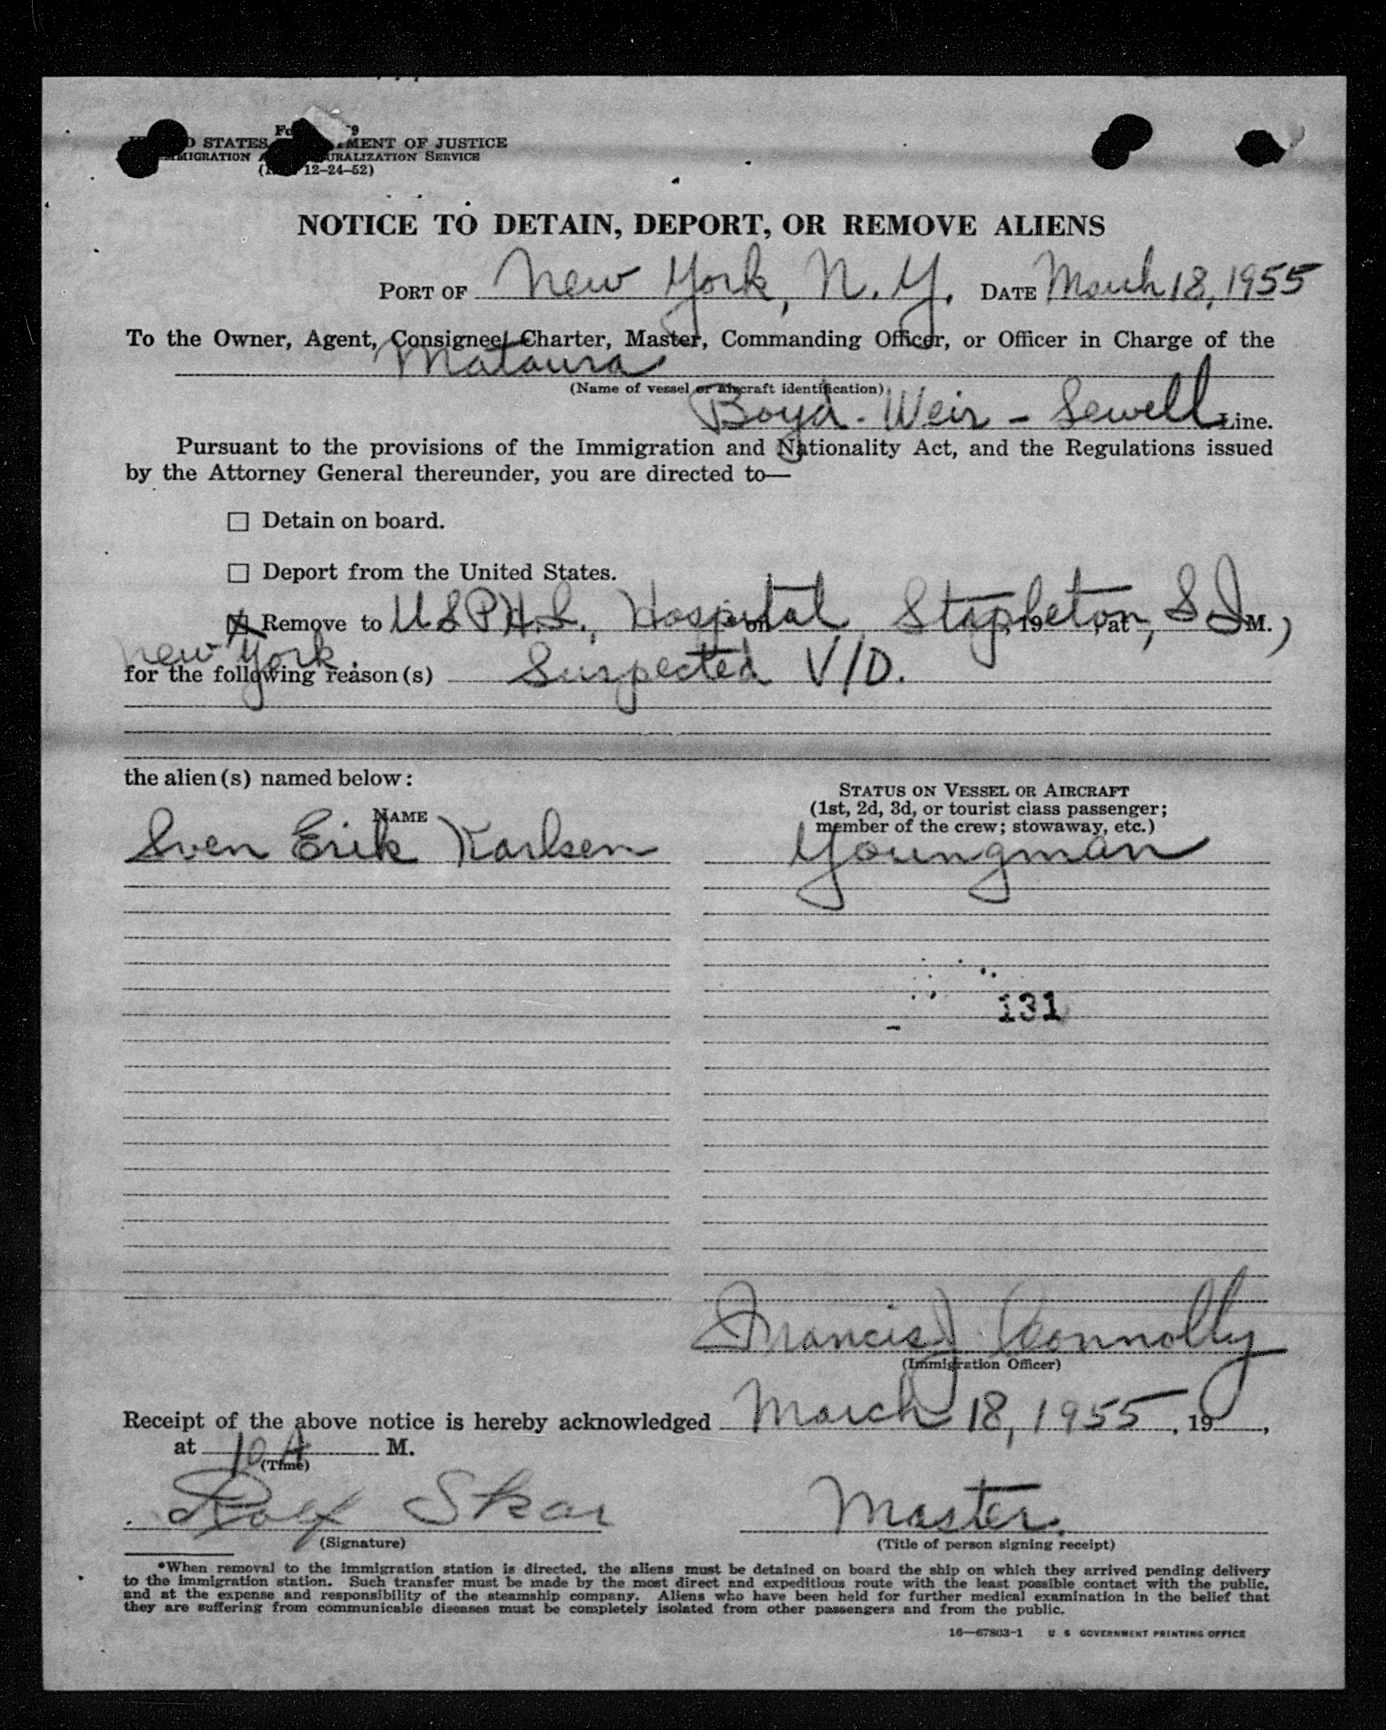 STATES MENT OF JUSTICE
IMMIGRATION NATURALIZATION SERVICE
12-24-52)
NOTICE TO DETAIN, DEPORT, OR REMOVE ALIENS
PORT OF New York, N. Y. DATE March 18, 1955
To the Owner, Agent, Consignee, Charter, Master, Commanding Officer, or Officer in Charge of the
Mataura
(Name of vessel or aircraft identification)
Boyd - Weir - Sewell Line.
Pursuant to the provisions of the Immigration and Nationality Act, and the Regulations issued
by the Attorney General thereunder, you are directed to—
☐ Detain on board.
☐ Deport from the United States.
☒ Remove to U S P H. S., Hospital on Stapleton, 19 , at S I M. )
New York.
for the following reason(s) Suspected V/D.
the alien(s) named below:
STATUS ON VESSEL OR AIRCRAFT
(1st, 2d, 3d, or tourist class passenger;
NAME member of the crew; stowaway, etc.)
Sven Erik Karlsen Youngman
131
Francis J Connolly
(Immigration Officer)
Receipt of the above notice is hereby acknowledged March 18, 1955, 19 ,
at 10 A M.
(Time)
Rolf Skar Master.
(Signature) (Title of person signing receipt)
*When removal to the immigration station is directed, the aliens must be detained on board the ship on which they arrived pending delivery
to the immigration station. Such transfer must be made by the most direct and expeditious route with the least possible contact with the public,
and at the expense and responsibility of the steamship company. Aliens who have been held for further medical examination in the belief that
they are suffering from communicable diseases must be completely isolated from other passengers and from the public.
16—67803-1 U S GOVERNMENT PRINTING OFFICE